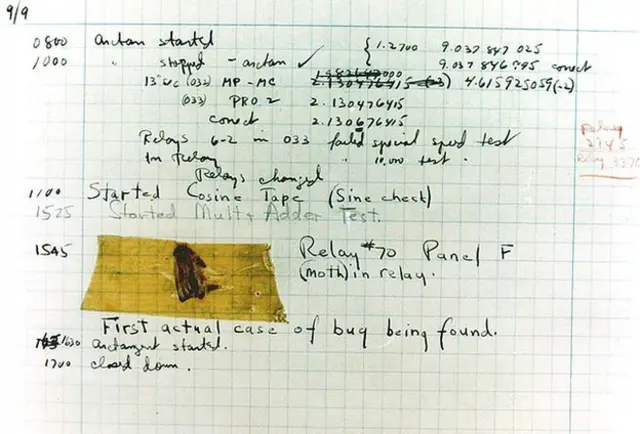 9/9
0800 arctan started { 1.2700 9.037 847 025
1000 " stopped - arctan ✓ 9.037 846 995 correct
13"uc (032) MP - MC 4.615925059(-2)
(033) PRO 2 2.130476415
correct 2.130676415
Relays 6-2 in 033 failed special speed test
In Relay " 10.000 test.
Relays changed
1100 Started Cosine Tape (Sine check)
1525 Started Mult + Adder Test.
1545 Relay #70 Panel F
(moth) in relay.
First actual case of bug being found.
1630 arctangent started.
1700 closed down.
Relay